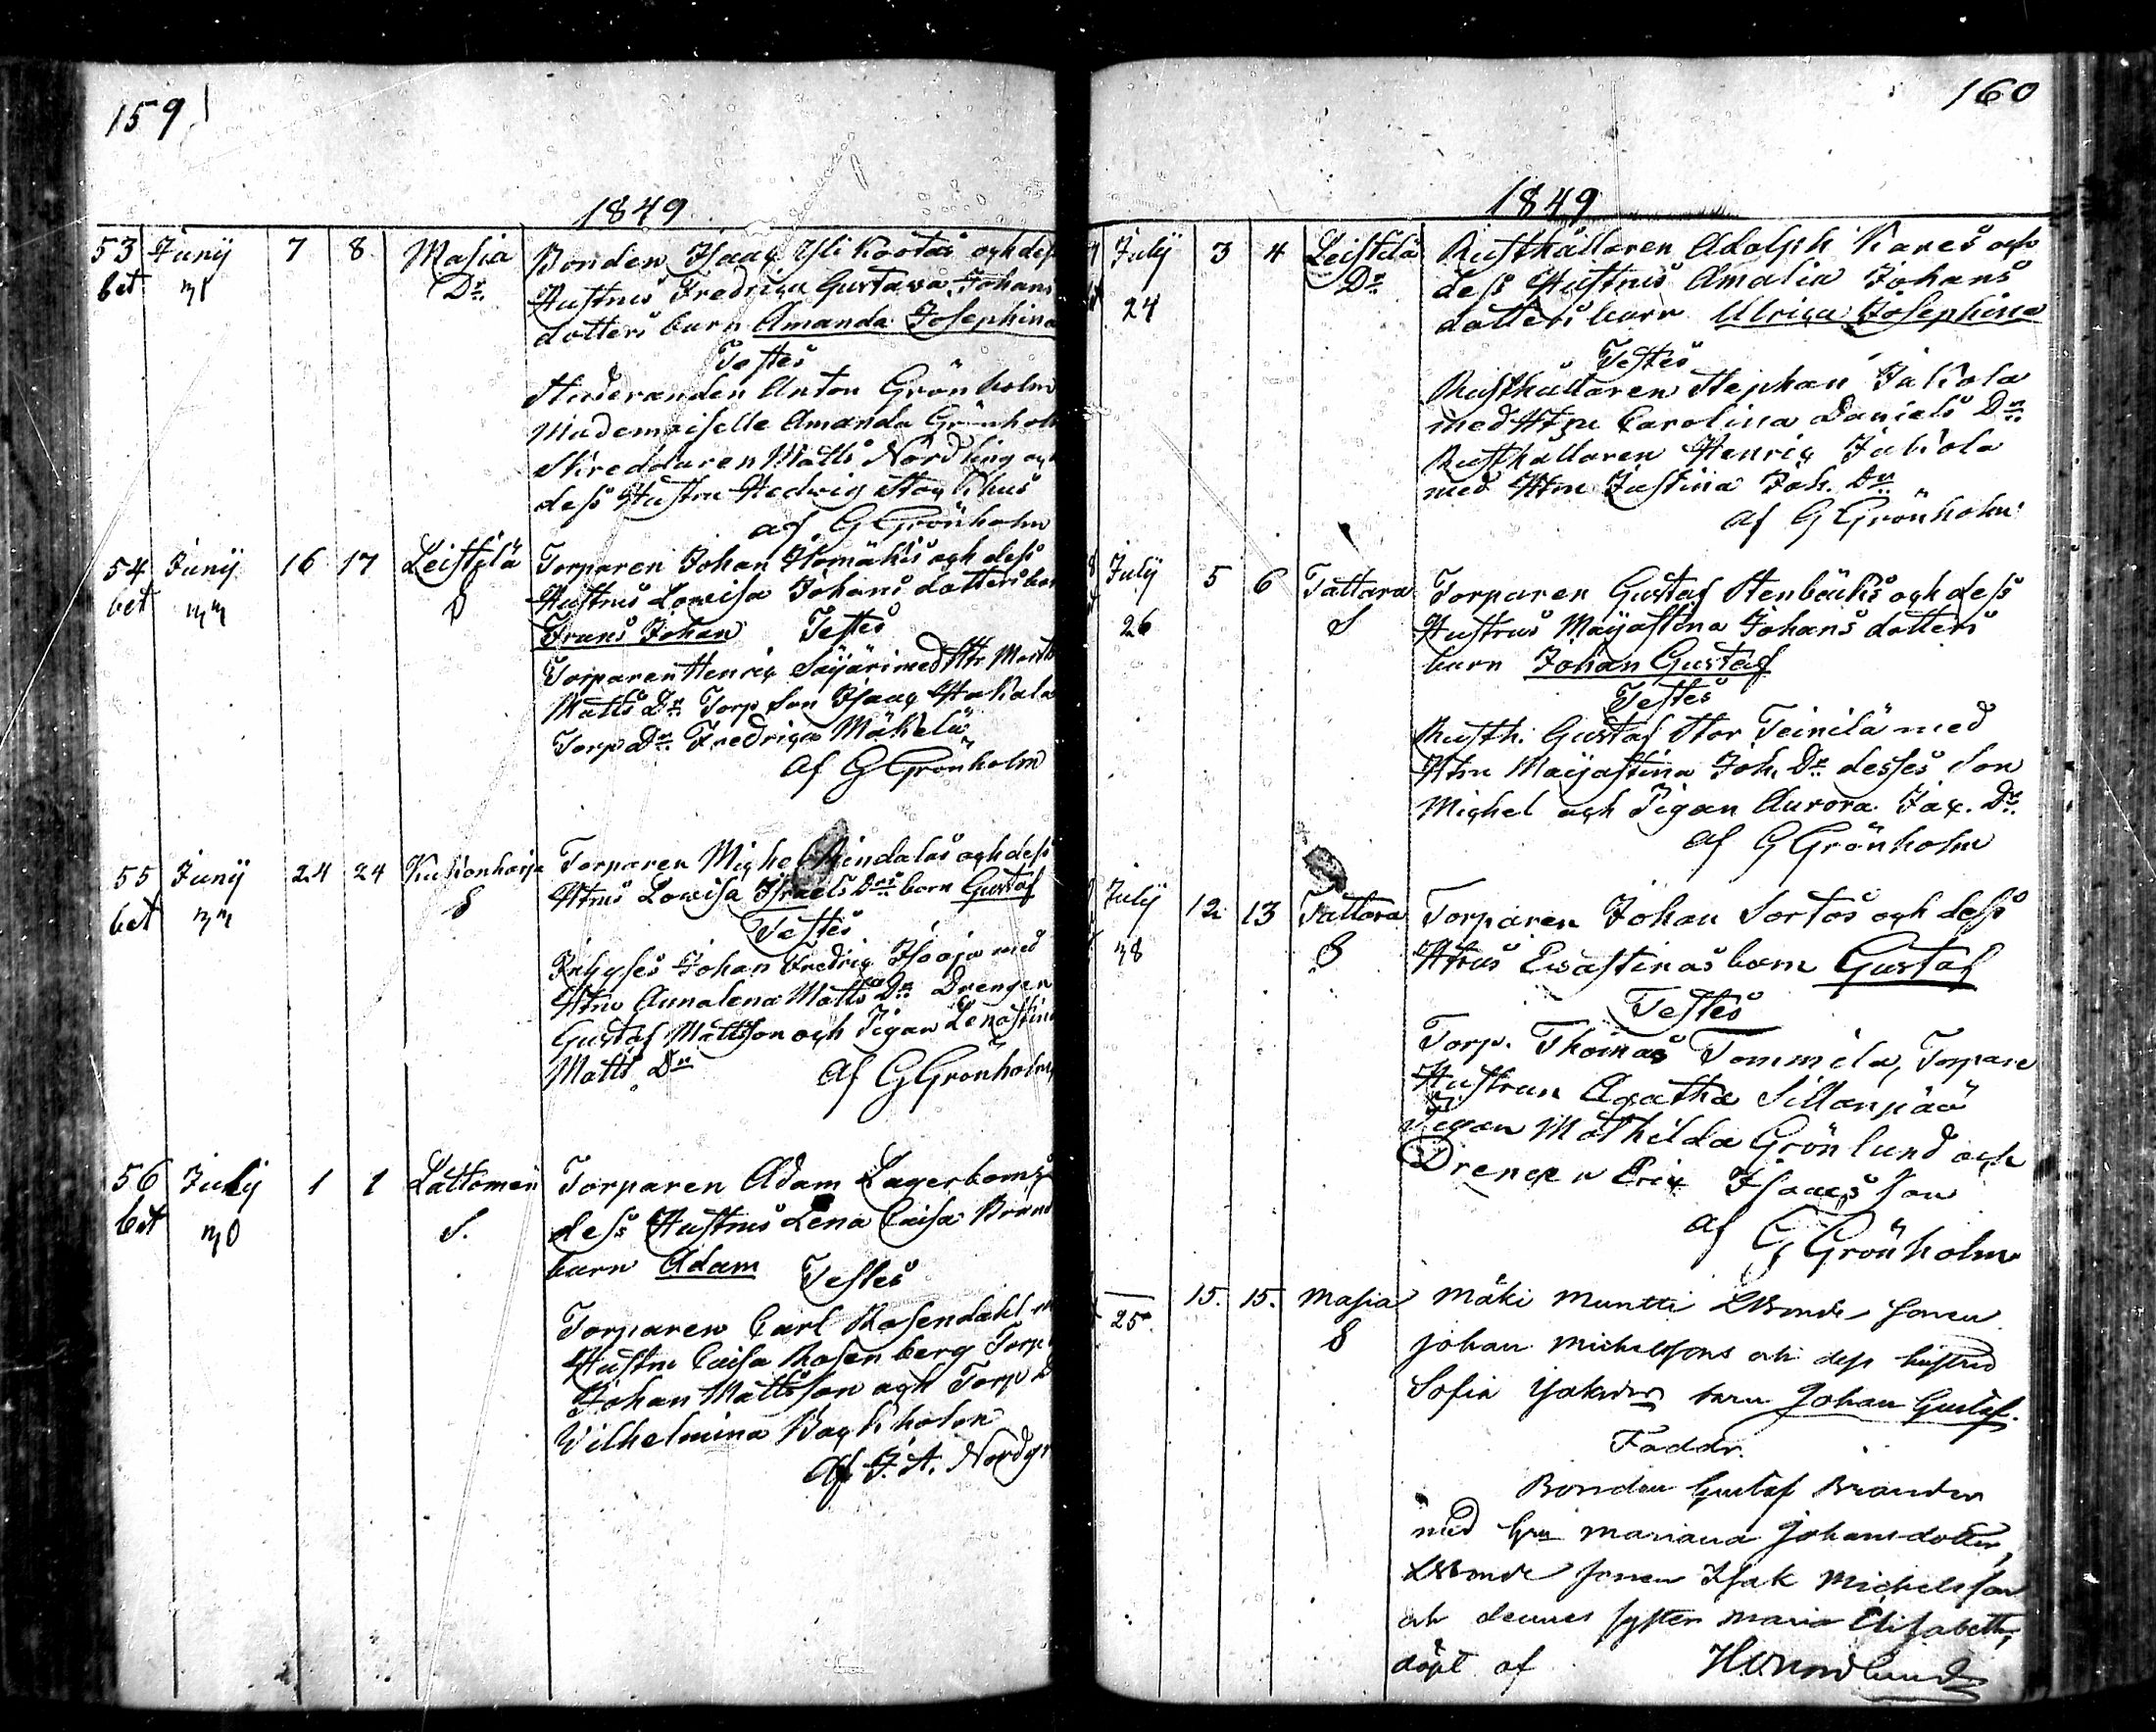 159
1849
53 Junij 7 8 Masia Bonden Isaac Yli Kootas och dess
bet Dr. Hustrus Fredrica Gustava Johans
dotters barn Amanda Josephina
Testes
Studeranden Anton Grönholm
Mademoiselle Amanda Grönholm
Skreddaren Matts Nordling och
dess Hustru Hedwig
af G Grönholm
54 Junij 16 17 Leistilä Torparen Johan och dess
bet S Hustrus Lovisa Johans dotters barn
Frans Johan Testes
Torparen Henric Säijäri med Htr
Matts Dr. Torp Son Isaac Hakala
Torp Dr. Fredrica Mäkelä
af G Grönholm
55 Junij 24 24 Torparen Michel och dess
bet S Htrus Lovisa Israels Drs barn Gustaf
Testes
Inhyses Johan Fredric med
Htru Annalena Matts Dr. Drengen
Gustaf Mattsson och Pigan Lenastina
Matts Dr af G Grönholm
56 July 1 1 Lattomeri Torparen Adam Lagerboms
bet S. dess Hustrus Lena Caisa
barn Adam Testes
Torparen Carl Rosendahl
Hustru Caisa Rosenberg Torp
Johan Mattsson och Torp D
Wilhelmina Backholm
Af J. A. Nordgr
160
1849
July 3 4 Leistilä Rusthållaren Adolph Kares och
Dr. dess Hustrus Amalia Johans
24 dotters barn Ulrica Josephina
Testes
Rusthållaren Stephan Jakola
med Htru Carolina Daniels Dr.
Rusthållaren Henric Jakola
med Htru Justina Joh. Dr
af G Grönholm
July 5 6 Tattara Torparen Gustaf Stenbäcks och dess
26 S Hustrus Majastina Johans dotters
barn Johan Gustaf
Testes
Rusth. Gustaf Stor Teinilä med
Htru Majastina Joh. Dr. desses Son
Michel och Pigan Aurora Jac. Dr.
af G Grönholm
July 12 13 Tattara Torparen Johan Sortos och dess
S Htrus Ewastinas barn Gustaf
Testes
Torp. Thomas Tommila, Torpare
Hustrun Agatha Sillanpää
Pigan Mathilda Grönlund och
Drengen Eric Isaacs son
af G Grönholm
25 15. 15. Masia Mäki Muntti Bonde sonen
S Johan Michelssons och dess hustru
Sofia barn Johan Gustaf.
Faddr.
Bonden Gustaf
med Hru Mariana Johansdotter,
Bonde sonen Isak Michelsson
och dennes syster Maria Elisabeth,
döpt af